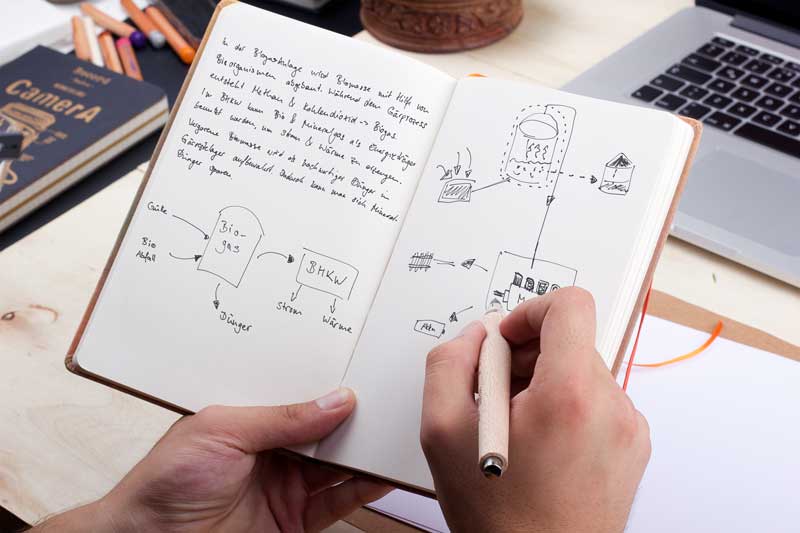 In der Biogasanlage wird Biomasse mit Hilf von
Bioorganismen abgebaut. Während dem Gärprozess
entsteht Methan & Kohlendioxid -> Biogas
Im BHKW kann Bio & Mineralgas als Energieträger
benutzt werden, um Strom & Wärme zu erzeugen.
Vergorene Biomasse wird als hochwertiger Dünger in
Gärrestlager aufbewahrt. Dadurch kann man sich Mineral-
Dünger sparen
Gülle
Bio
Abfall
Bio-
gas
BHKW
Dünger
Strom
Wärme
M
Record
CamerA